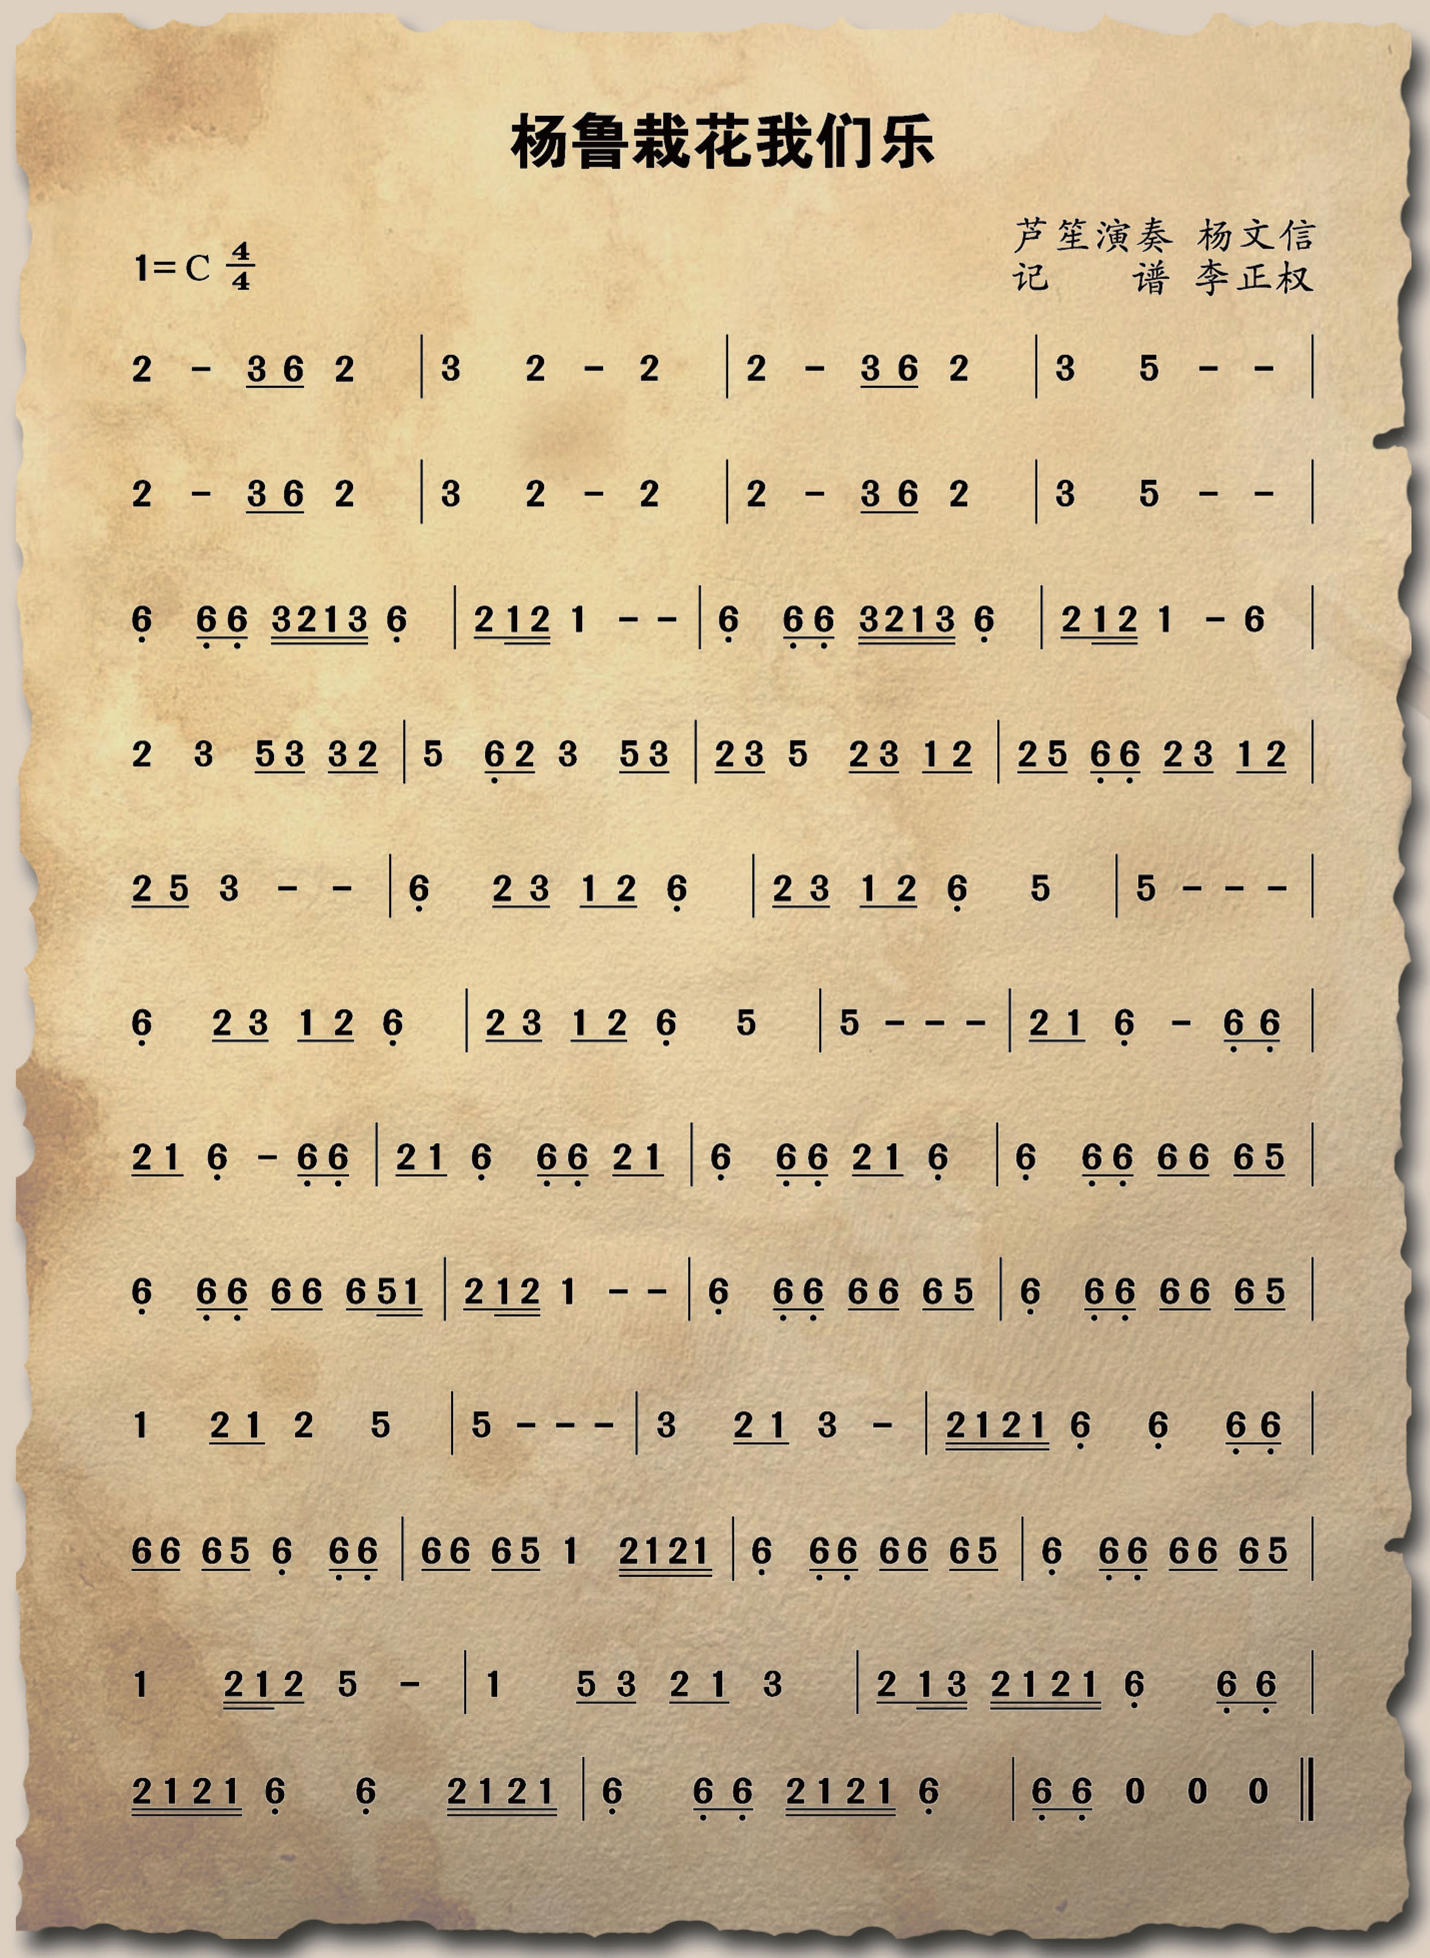 杨鲁栽花我们乐
芦笙演奏 杨文信
1=C 4/4
记 谱 李正权
2 - 3 6 2 | 3 2 - 2 | 2 - 3 6 2 | 3 5 - - |
2 - 3 6 2 | 3 2 - 2 | 2 - 3 6 2 | 3 5 - - |
6̣ 6̣ 6̣ 3 2 1 3 6̣ | 2 1 2 1 - - | 6̣ 6̣ 6̣ 3 2 1 3 6̣ | 2 1 2 1 - 6 |
2 3 5 3 3 2 | 5 6̣ 2 3 5 3 | 2 3 5 2 3 1 2 | 2 5 6̣ 6̣ 2 3 1 2 |
2 5 3 - - | 6̣ 2 3 1 2 6̣ | 2 3 1 2 6̣ 5 | 5 - - - |
6̣ 2 3 1 2 6̣ | 2 3 1 2 6̣ 5 | 5 - - - | 2 1 6̣ - 6̣ 6̣ |
2 1 6̣ - 6̣ 6̣ | 2 1 6̣ 6̣ 6̣ 2 1 | 6̣ 6̣ 6̣ 2 1 6̣ | 6̣ 6̣ 6̣ 6 6 6 5 |
6̣ 6̣ 6̣ 6 6 6 5 1 | 2 1 2 1 - - | 6̣ 6̣ 6̣ 6 6 6 5 | 6̣ 6̣ 6̣ 6 6 6 5 |
1 2 1 2 5 | 5 - - - | 3 2 1 3 - | 2 1 2 1 6̣ 6̣ 6̣ 6̣ |
6 6 6 5 6̣ 6̣ 6̣ | 6 6 6 5 1 2 1 2 1 | 6̣ 6̣ 6̣ 6 6 6 5 | 6̣ 6̣ 6̣ 6 6 6 5 |
1 2 1 2 5 - | 1 5 3 2 1 3 | 2 1 3 2 1 2 1 6̣ 6̣ 6̣ |
2 1 2 1 6̣ 6̣ 2 1 2 1 | 6̣ 6̣ 6̣ 2 1 2 1 6̣ | 6̣ 6̣ 0 0 0 ‖